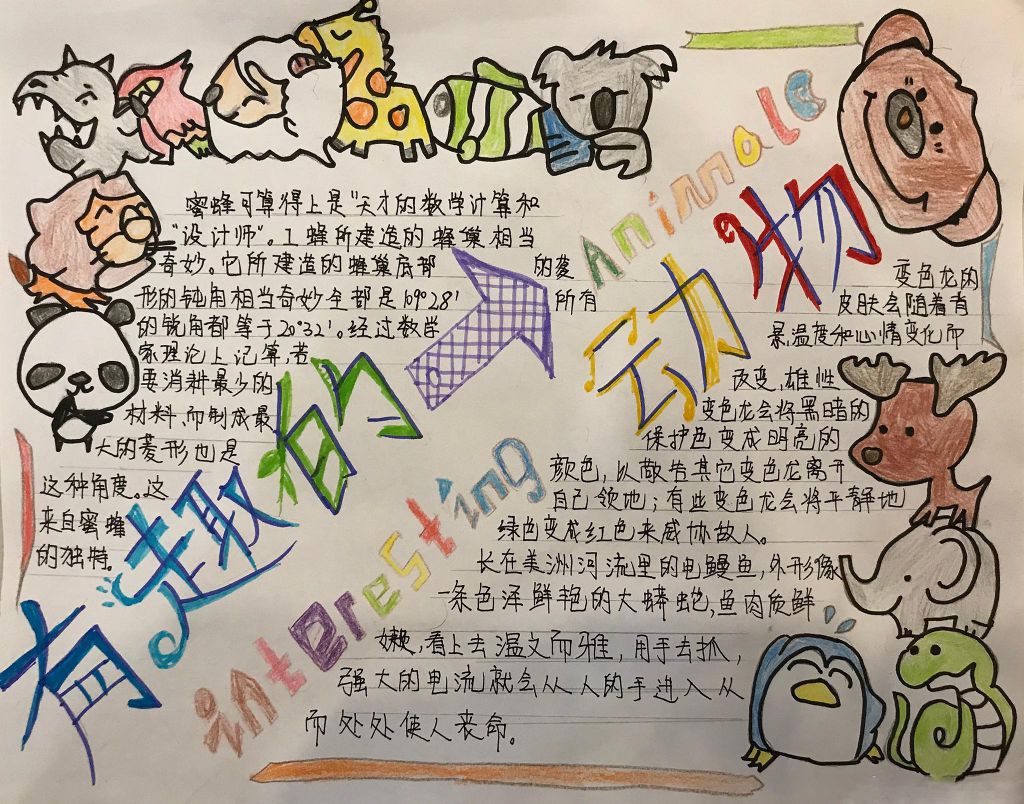 有趣的动物
interesting
Aninnale
蜜蜂可算得上是“天才的数学计算和
“设计师”。工蜂所建造的蜂巢相当
奇妙。它所建造的蜂巢底部的菱
形的钝角相当奇妙全都是109°28′所有
的锐角都等于70°32′。经过数学
家理论上记算,若
要消耗最少的
材料,而制成最
大的菱形也是
这种角度。这
来自蜜蜂
的独特。
变色龙的
皮肤会随着背
景,温度和心情变化而
改变,雄性
变色龙会将黑暗的
保护色变成明亮的
颜色,以敬告其它变色龙离开
自己领地;有些变色龙会将平静地
绿色变成红色来威协敌人。
长在美洲河流里的电鳗鱼,外形像
一条色泽鲜艳的大蟒蛇,鱼肉质鲜
嫩,看上去温文而雅,用手去抓,
强大的电流就会从人的手进入从
而处处使人丧命。